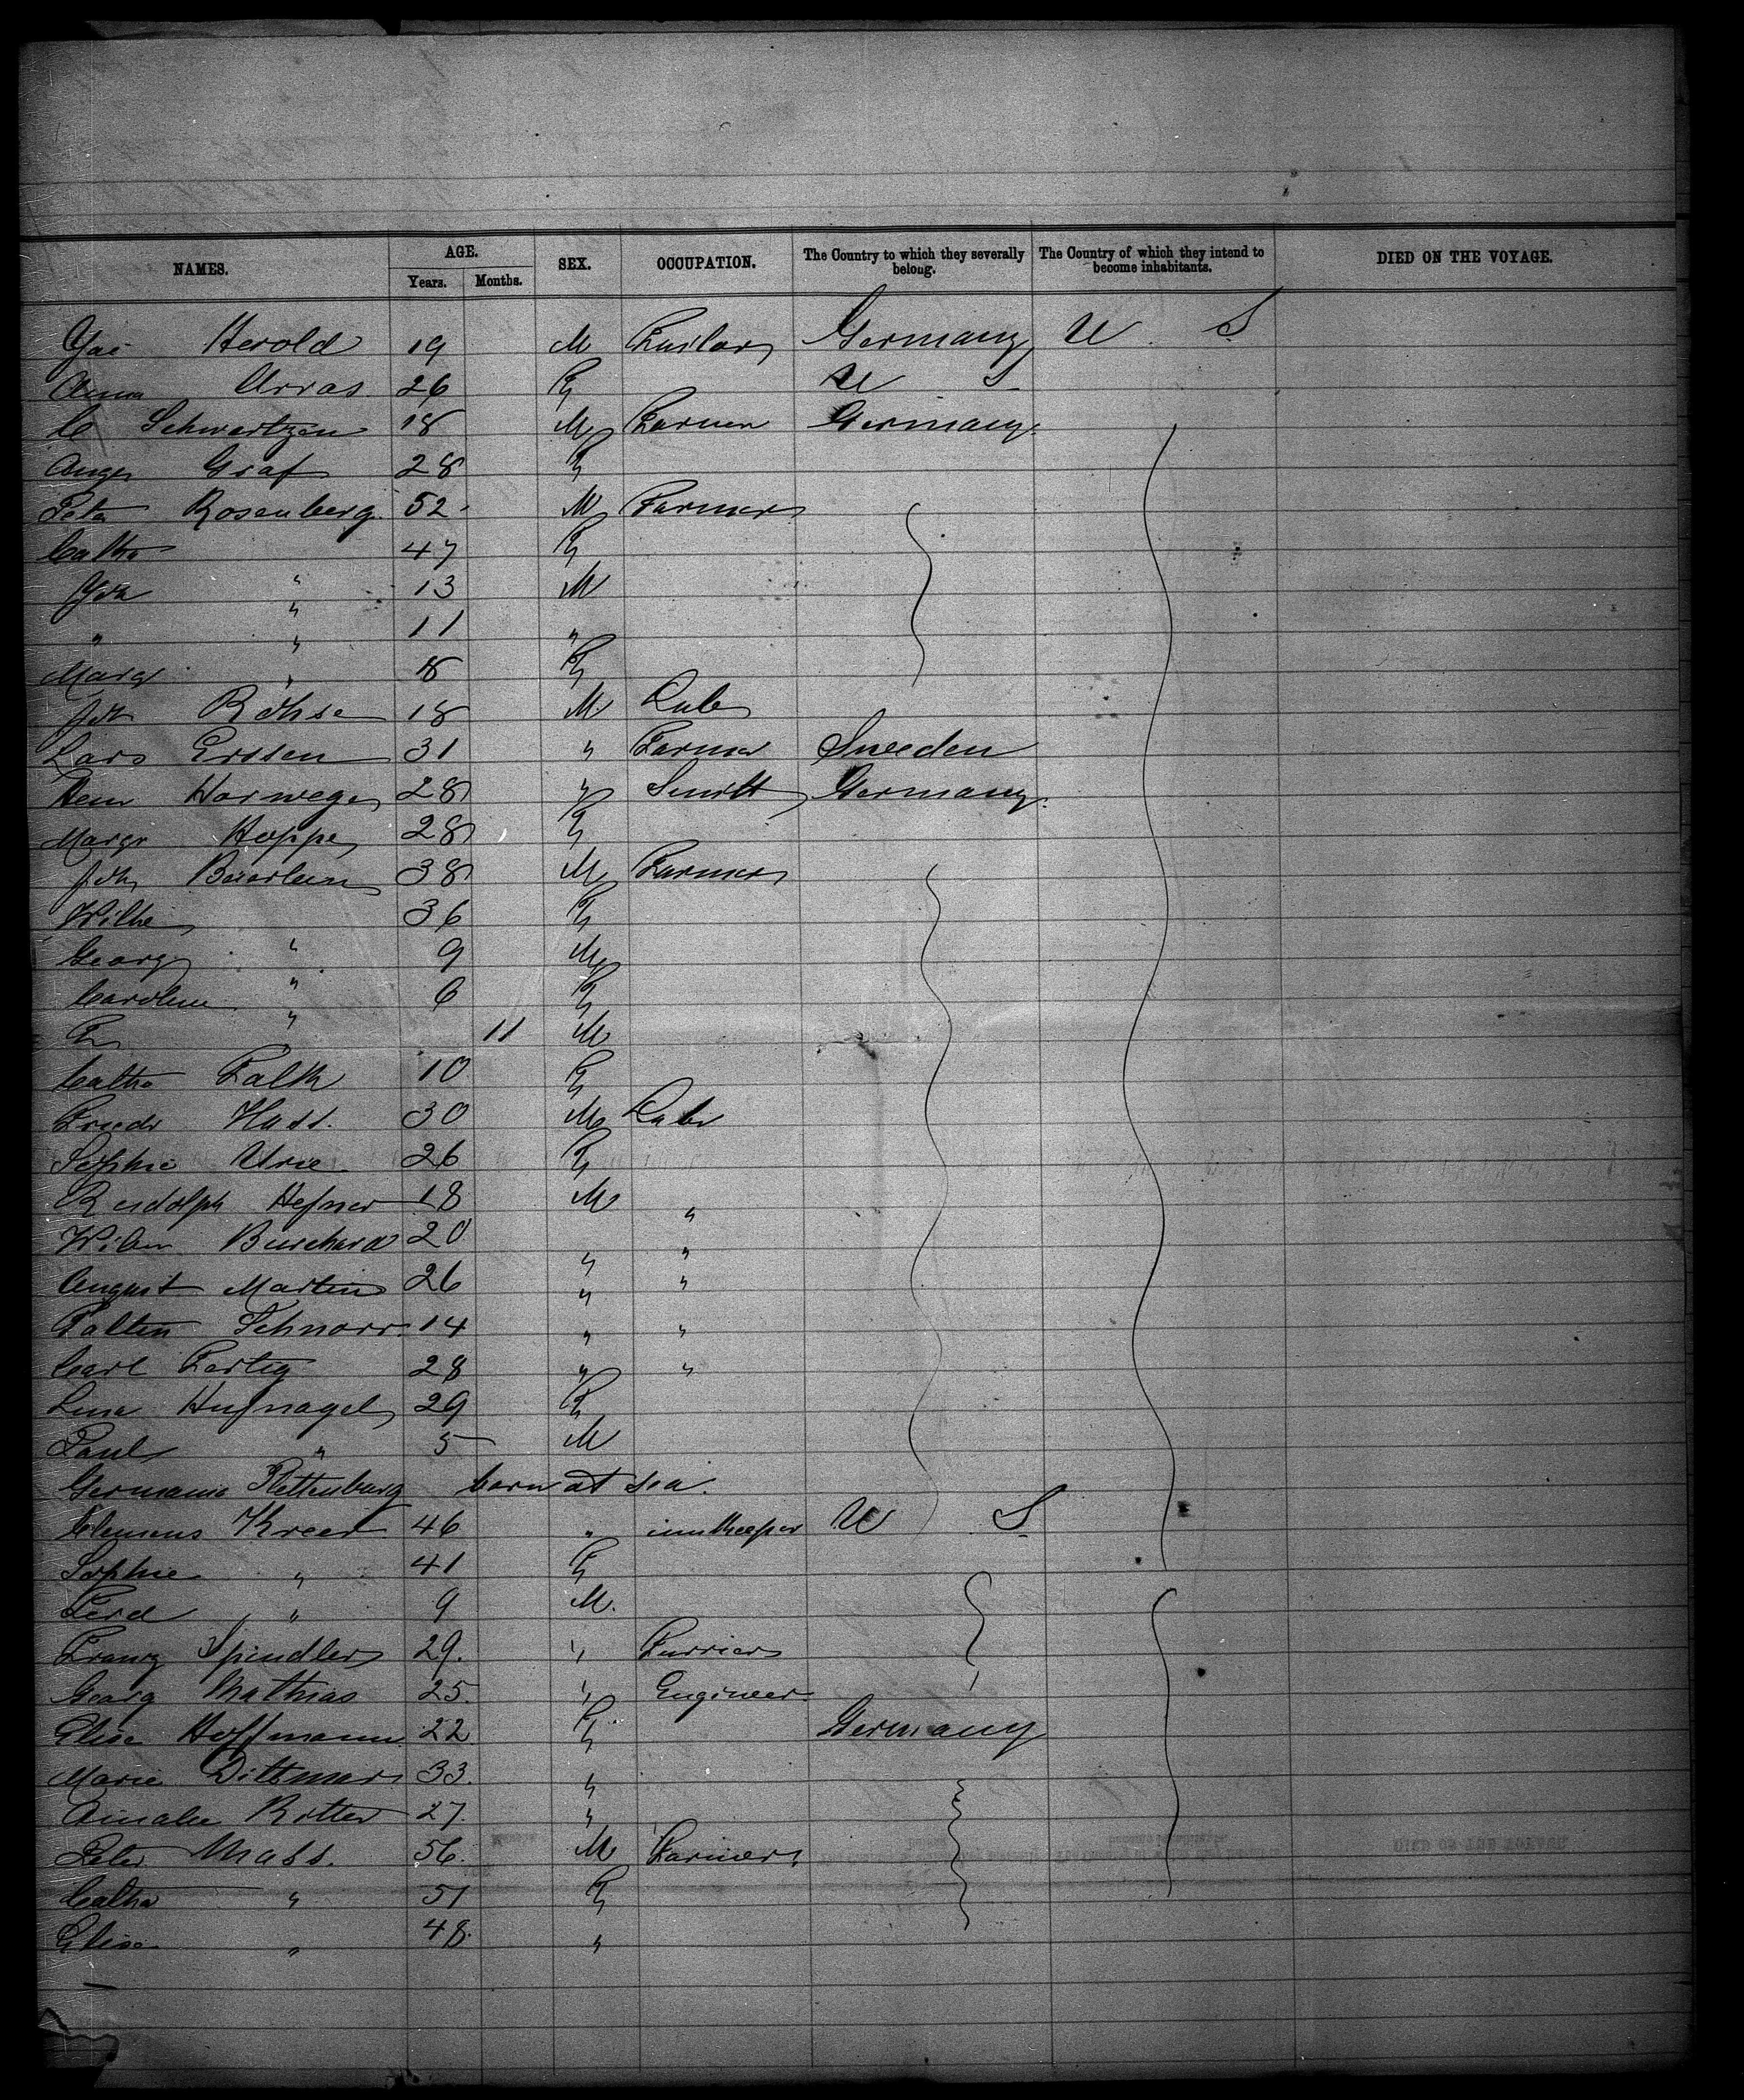 NAMES. AGE. Years. Months. SEX. OCCUPATION. The Country to which they severally belong. The Country of which they intend to become inhabitants. DIED ON THE VOYAGE.
Herold 19 M Germany U S
Anna Arras 26 F U S
C Schwartzen 18 M Germany
Graf 28 F
Peter Rosenberg 52 M Farmer
Catha 47 F
Joh " 13 M
" " 11 "
Marg " 8 F
Joh Röhse 18 M Labr
Lars Erssen 31 " Farmer Sweden
Hein Harwege 28 " Smith Germany
Margr Hoppe 28 F
Joh 38 M Farmer
Wilhe 36 F
Georg " 9 M
Caroline " 6 F
Fr " 11 M
Catha Falk 10 F
Friedr Hass. 30 M Labr
Sophie Urie 26 F
Rudolph Hefner 18 M "
Wilm Burchard 20 " "
August Martin 26 " "
Schnorr 14 " "
Carl Fertig 28 " "
Lina Hufnagel 29 F
Paul " 5 M
Germania Plettenburg born at sea.
Clemens 46 " innkeeper U S
Sophie " 41 F
Ferd " 9 M.
Franz Spindler 29. " Furrier
Georg Mathias 25. " Engineer
Elise Hoffmann 22 F Germany
Marie Dittmar 33. "
Amalie Ritter 27. "
Peter Mass. 56. M Farmer
Catha " 51 F
Elise " 48. "